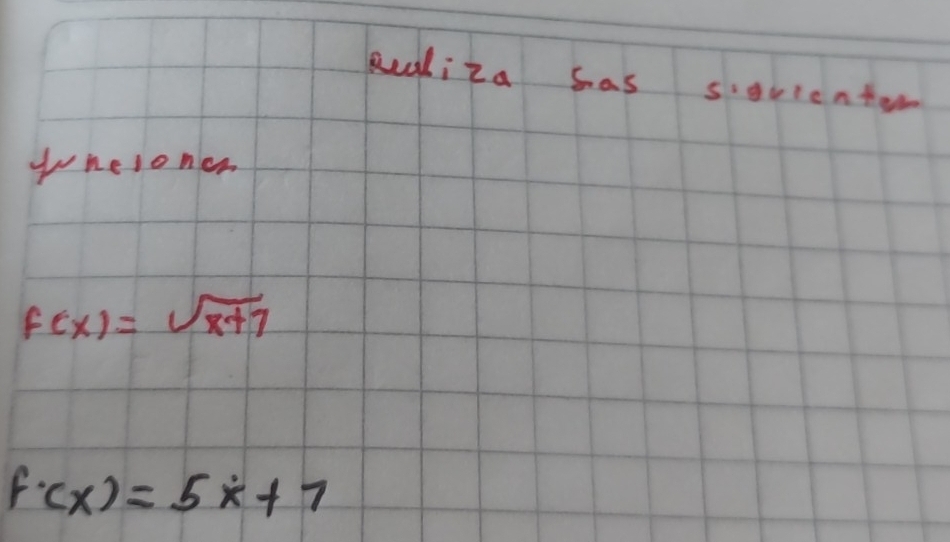 Realiza Las siguientes
funciones
f(x) = √x+7
f(x) = 5x + 7